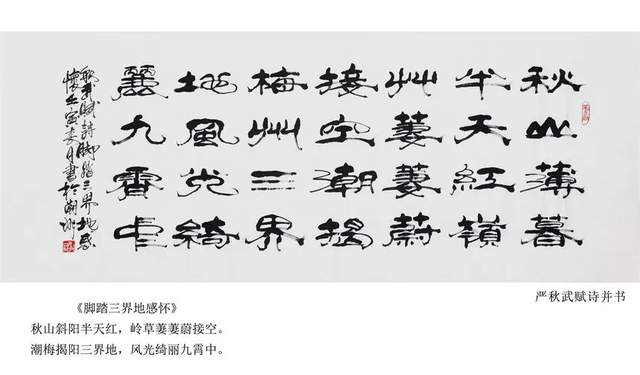 秋山薄暮
半天紅嶺
艸萋萋蔚
接空潮揭
梅州三界
地風光綺
麗九霄中
秋武賦詩脚踏三界地感
懷壬寅春月書於潮州
严秋武赋诗并书
《脚踏三界地感怀》
秋山斜阳半天红，岭草萋萋蔚接空。
潮梅揭阳三界地，风光绮丽九霄中。